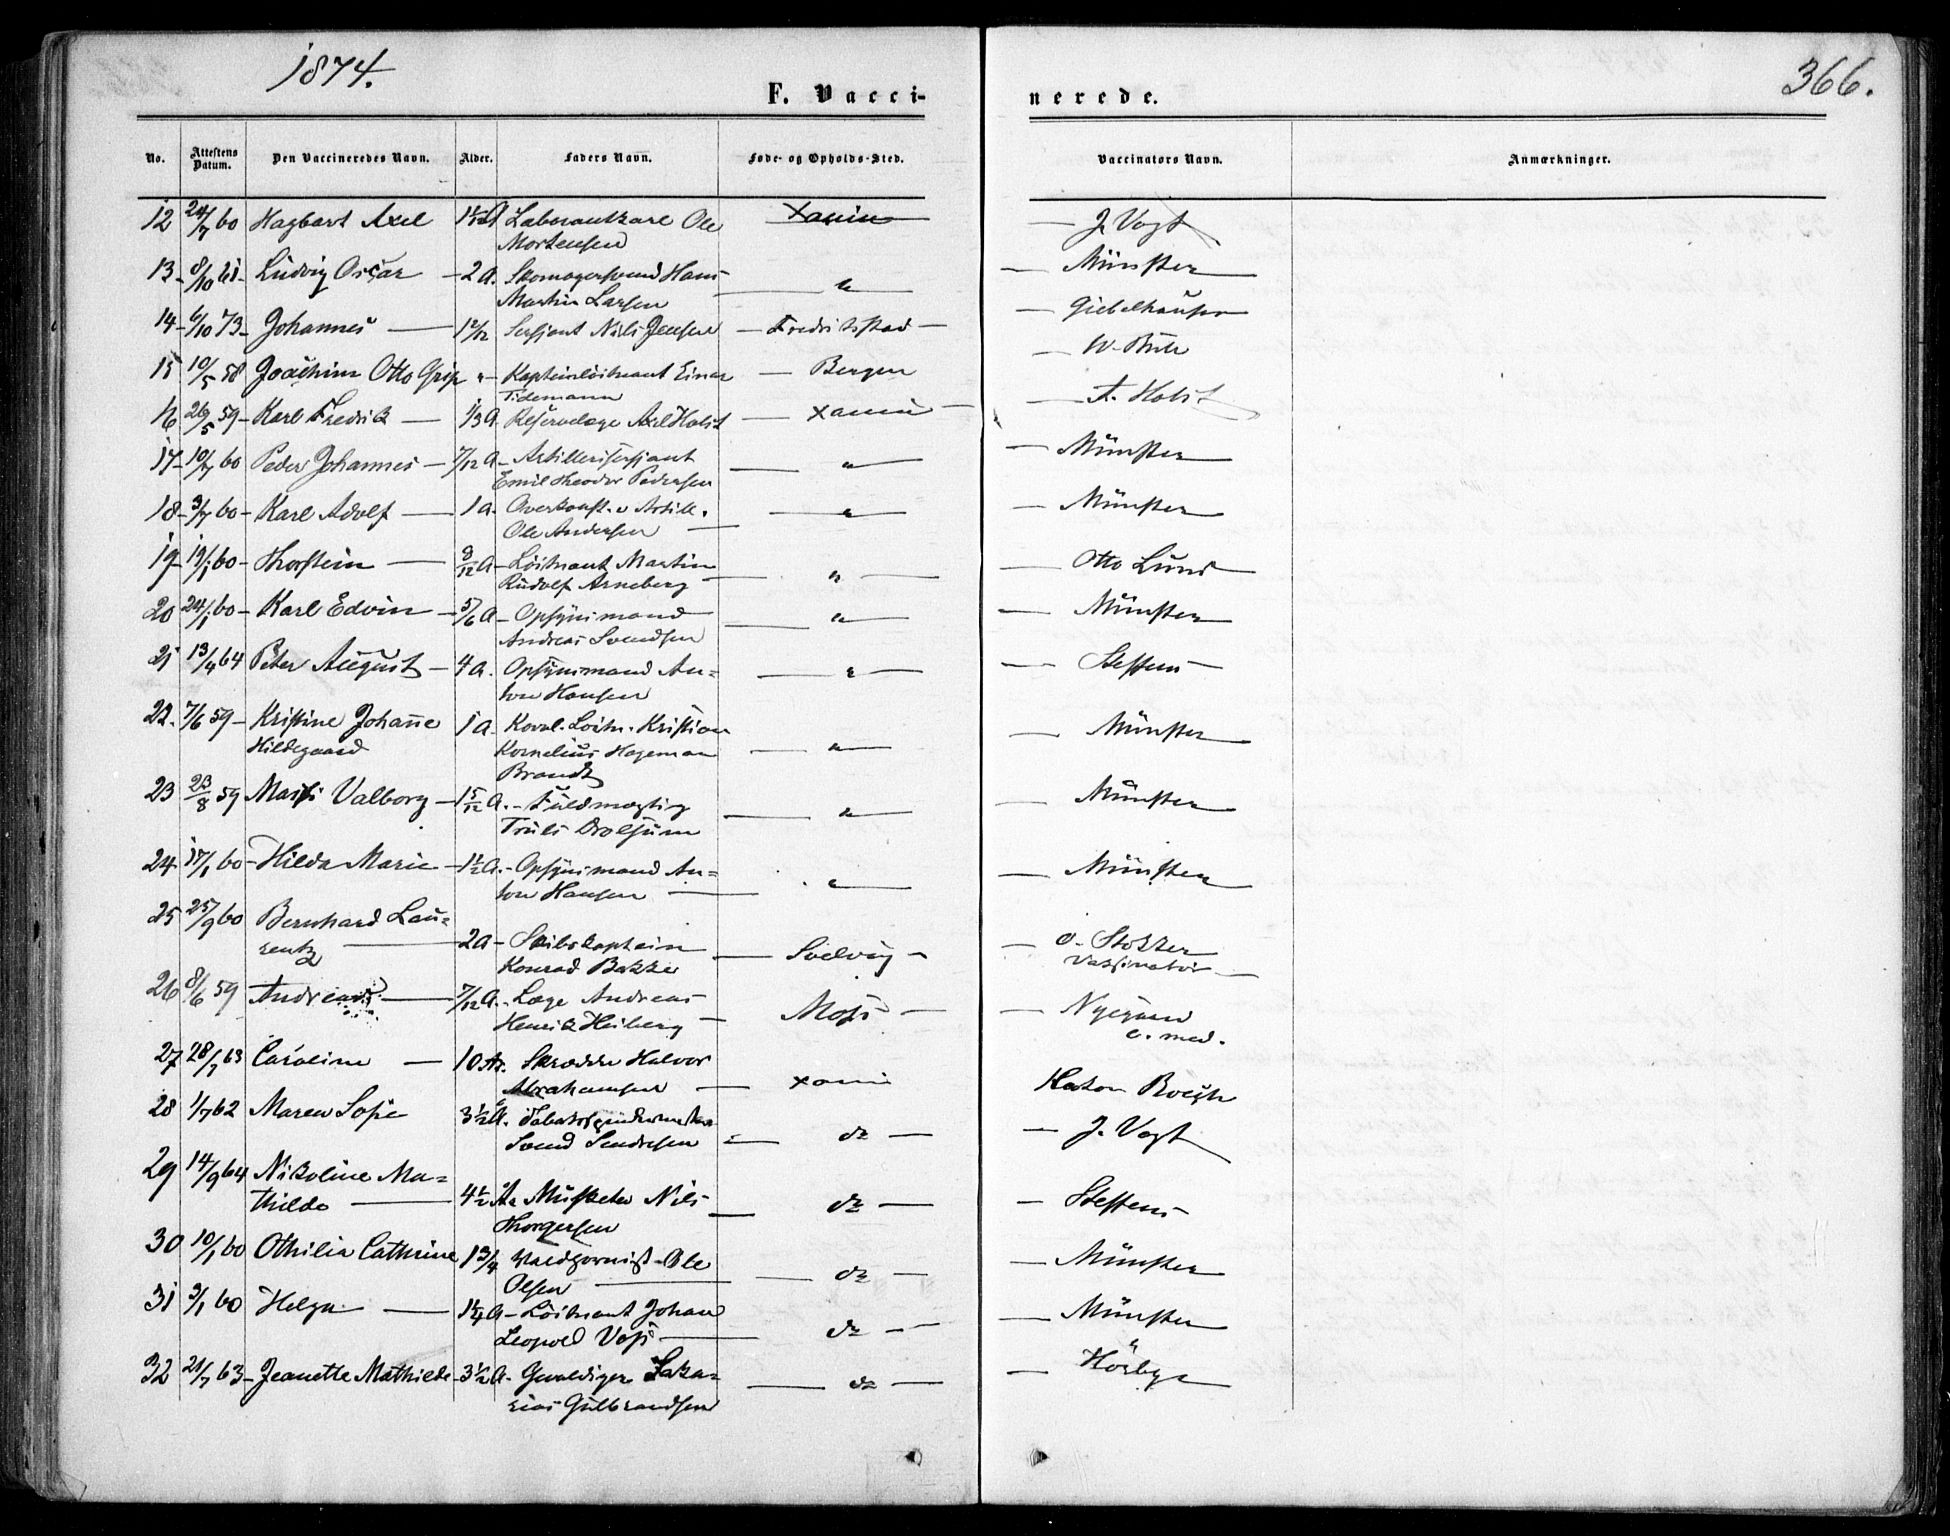 1874.
366.
F. Vacci-
nerede.
No.
Attestens Datum.
Den Vaccineredes Navn.
Alder.
Faders Navn.
Føde- og Opholds-Sted.
Vaccinators Navn.
Anmærkninger.
12 24/7 60 Hagbart Axel Ole Xania — J. Vogt
Mortensen
13 - 8/10 61 - Ludvig Oscar — 2 A. Skomagersvend Hans — " — Münster
Martin Larsen
14 - 6/10 73 - Johannes — Sersjant Nils Jensen — Fredrikstad — — Giebelhausen
15 10/5 58 Joachim Otto Grip " - Kapteinløitnant Einar — Bergen — W.
Tidemann
16 26/5 59 - Karl Fredrik — 1/3 A. Reservelæge Axel Holst — Xania — — A. Holst
17 - 10/7 60 Peder Johannes — 7/12 A - Artillerisersjant — " — — Münster
Emil Theodor Pedersen
18 - 3/7 60 - Karl Adolf — 1 A. Overkonst. v Artill. — " — — Münster
Ole Andersen —
19 - 19/1 60 - Thorstein — 8/12 A - Løitnant Martin — " — — Otto Lund
Rudolf Arneberg
20 24/1 60 - Karl Edvin — 5/6 A - Opsynsmand — " — — Münster
Andreas Svendsen
21 13/4 64 Peter August — 4 A. Opsynsmand An= — " — — Steffens —
ton Hansen
22. 7/6 59 - Kristine Johanne 1 A. Kaval. Løitn. Kristian — " — — Münster
Hildegaard Kornelius Hageman
Brandt
23 23/8 59 Valborg — 1 5/12 A. - Fuldmægtig — " — — Münster
Truls Drolsum
24 17/1 60 - Hilda Marie — 1½ A. - Opsynsmand An= — " — — Münster
ton Hansen —
25 25/9 60 Bernhard Lau=
rentz — 2 A - Skibskaptein — Svelvig — — O. Stokker
Konrad Bakke Vaksinatør —
26 8/6 59 Andreas — 7/12 A. - Læge Andreas — Moss — — Nygaard
Henrik Heiberg — c. med.
27 28/7 63 Caroline — 10 Ar. Skrædder Halvor — Xania
Abrahamsen
28 1/7 62 Maren Sofie 3½ A. — do — — J. Vogt
Svend
29 14/9 64 Nikoline Ma=
thilde — 4½ A. Musketer Nils — do — — Steffens —
Thorgersen
30 10/1 60 Othilia Cathrine 1 3/4 Valdhornist - Ole — do — — Münster
Olsen —
31 3/1 60 Helga — 1¼ A - Løitnant Johan — do — — Münster
Leopold Voss —
32 21/7 63 - Jeanette Mathilde - 3½ A - Gevaldiger Saka= — do — — Hörbye
rias Gulbrandsen